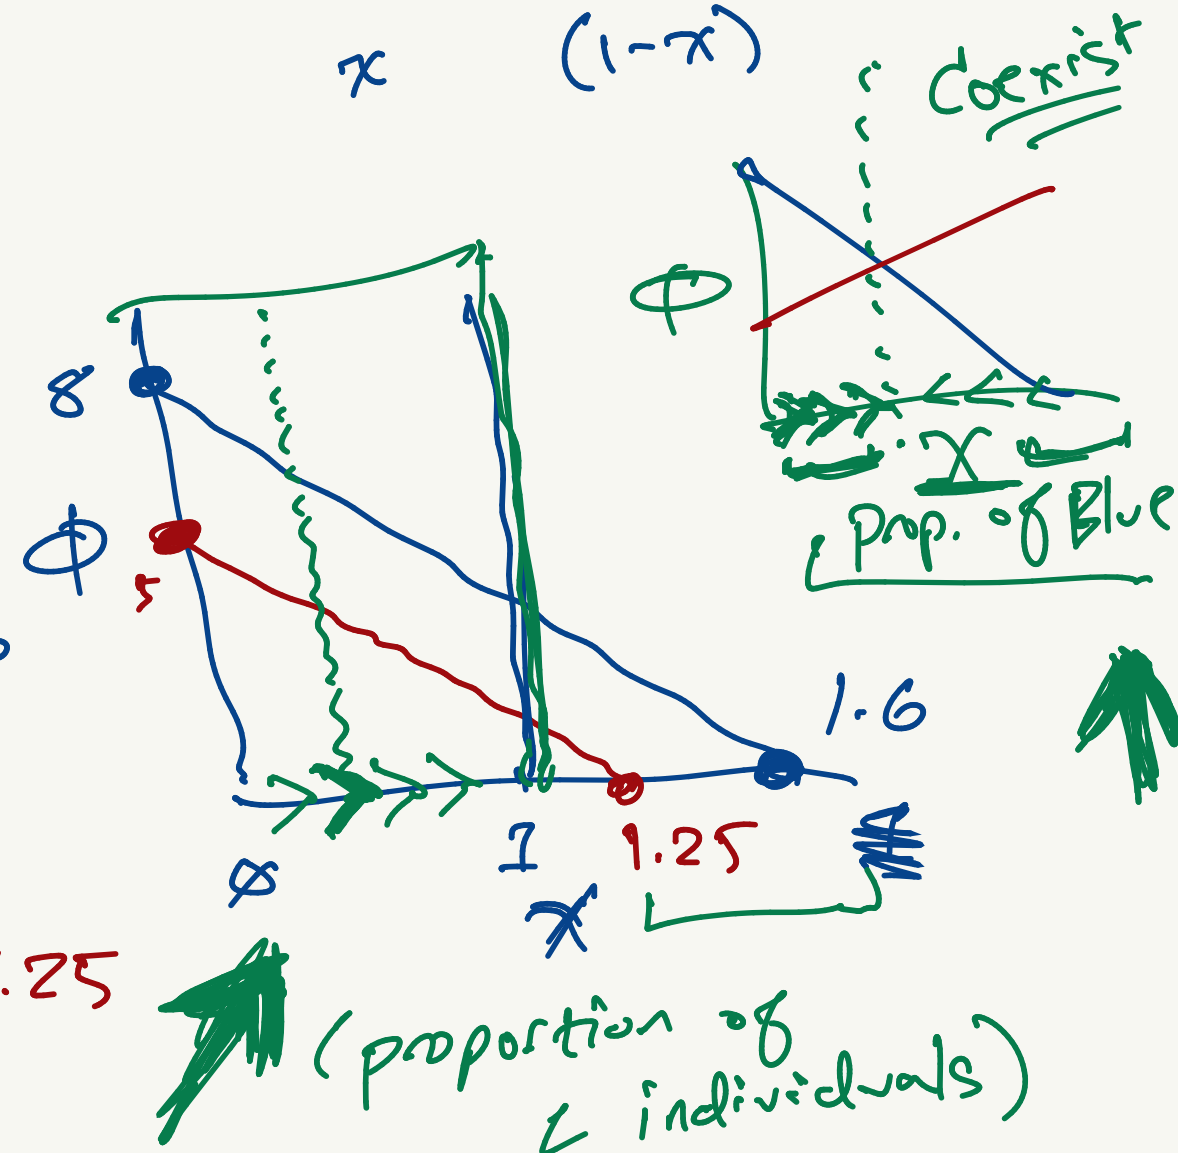 x (1-x)
Coexist
8
ϕ
ϕ
5
X
Prop. of Blue
1.6
0 1 1.25
x
.25
(proportion of
individuals)